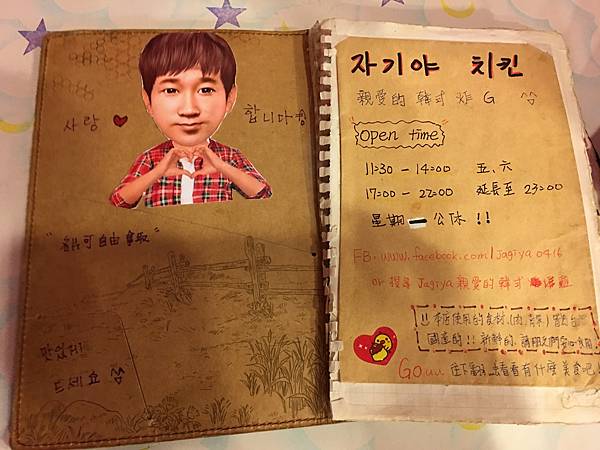 사랑 ❤ 합니다
맛있게
드세요
자기야 치킨
親愛的 韓式 炸 G ^^
Open time
11:30 - 14:00 五、六
17:00 - 22:00 延長至 23:00
星期一 公休 !!
FB. www.facebook.com/jagiya0416
or 搜尋 Jagiya 親愛的韓式炸雞
!! 本店使用的食材(肉、青菜)皆為台
國產的!! 新鮮的, 請朋友們安心食用
Go.... 往下翻 看看有什麼美食吧!